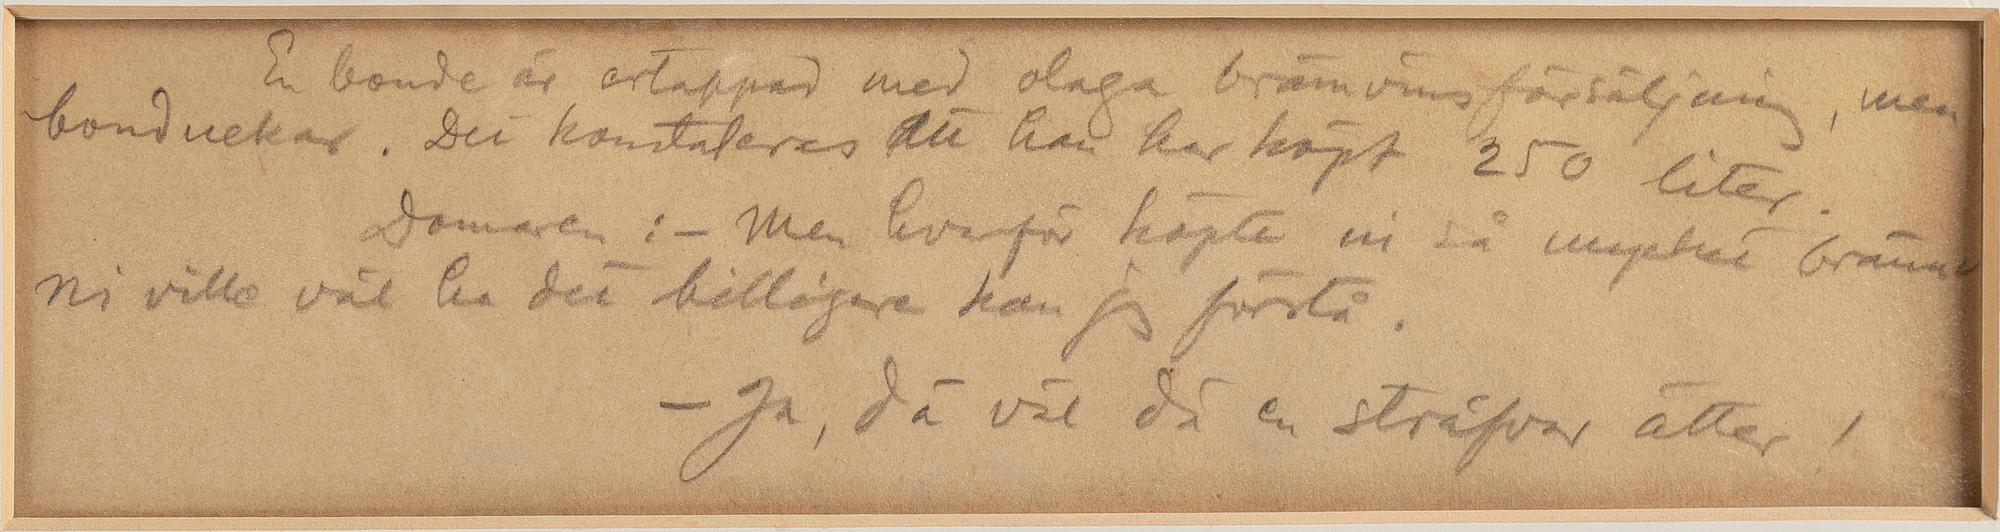 En bonde är ertappad med olaga brännvinsförsäljning, men
bondnekar. Det konstateras att han har köpt 250 liter.
Domaren :- Men hvarför köpte ni så mycket bränn
Ni ville väl ha det billigare kan jag förstå.
- Ja, dä väl dä en sträfvar ätter !